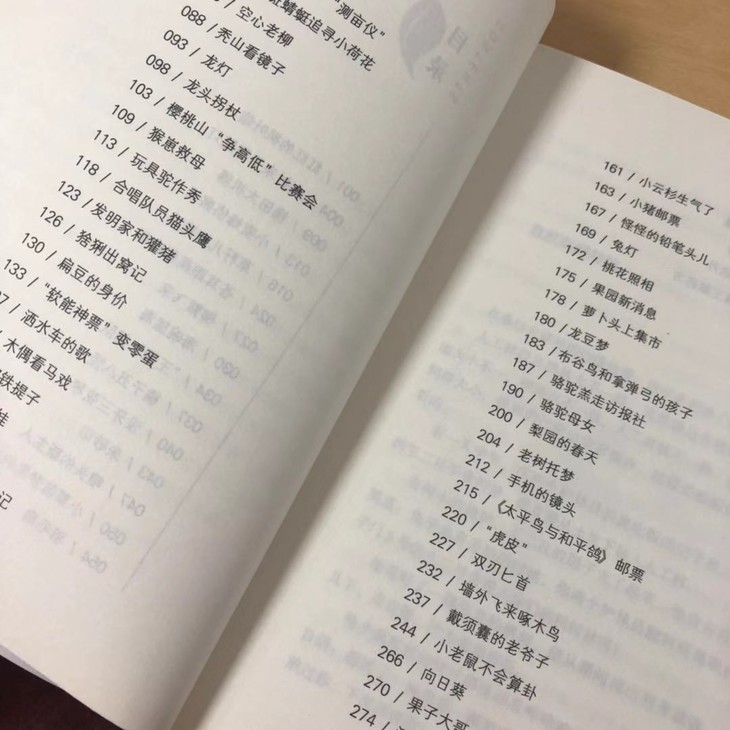 "测亩仪"
蜻蜓追寻小荷花
空心老柳
088 / 秃山看镜子
093 / 龙灯
098 / 龙头拐杖
103 / 樱桃山“争高低”比赛会
109 / 猴崽救母
113 / 玩具驼作秀
118 / 合唱队员猫头鹰
123 / 发明家和獾猪
126 / 猞猁出窝记
130 / 扁豆的身价
133 / “软能神票”变零蛋
/ 洒水车的歌
/ 木偶看马戏
铁提子
记
目录
161 / 小云杉生气了
163 / 小猪邮票
167 / 怪怪的铅笔头儿
169 / 兔灯
172 / 桃花照相
175 / 果园新消息
178 / 萝卜头上集市
180 / 龙豆梦
183 / 布谷鸟和拿弹弓的孩子
187 / 骆驼羔走访报社
190 / 骆驼母女
200 / 梨园的春天
204 / 老树托梦
212 / 手机的镜头
215 / 《太平鸟与和平鸽》邮票
220 / “虎皮”
227 / 双刃匕首
232 / 墙外飞来啄木鸟
237 / 戴须囊的老爷子
244 / 小老鼠不会算卦
266 / 向日葵
270 / 果子大哥
274 /